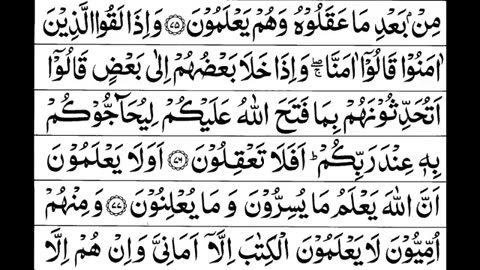 مِنۡۢ بَعۡدِ مَا عَقَلُوۡهُ وَهُمۡ يَعۡلَمُوۡنَ ﴿۷۵﴾ وَاِذَا لَقُوا الَّذِيۡنَ
اٰمَنُوۡا قَالُوۡٓا اٰمَنَّا ۖۚ وَاِذَا خَلَا بَعۡضُهُمۡ اِلٰى بَعۡضٍ قَالُوۡٓا
اَتُحَدِّثُوۡنَهُمۡ بِمَا فَتَحَ اللّٰهُ عَلَيۡكُمۡ لِيُحَآجُّوۡكُمۡ
بِهٖ عِنۡدَ رَبِّكُمۡ ؕ اَفَلَا تَعۡقِلُوۡنَ ﴿۷۶﴾ اَوَلَا يَعۡلَمُوۡنَ
اَنَّ اللّٰهَ يَعۡلَمُ مَا يُسِرُّوۡنَ وَمَا يُعۡلِنُوۡنَ ﴿۷۷﴾ وَمِنۡهُمۡ
اُمِّيُّوۡنَ لَا يَعۡلَمُوۡنَ الۡكِتٰبَ اِلَّاۤ اَمَانِىَّ وَاِنۡ هُمۡ اِلَّا